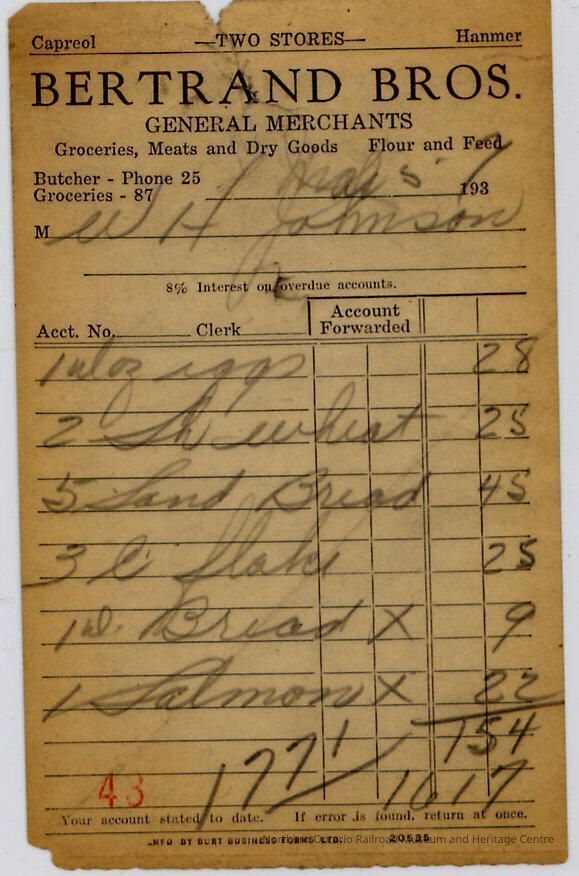 Capreol —TWO STORES— Hanmer
BERTRAND BROS.
GENERAL MERCHANTS
Groceries, Meats and Dry Goods Flour and Feed
Butcher - Phone 25
Groceries - 87 5 193 7
M W H Johnson
8% Interest on overdue accounts.
Acct. No. Clerk Account Forwarded
1 doz eggs 28
2 Sh wheat 25
5 Sand Bread 45
3 C flake 25
1 W. Bread X 9
1 Salmon X 22
154
1771 1617
43
Your account stated to date. If error is found, return at once.
MFD BY BURT BUSINESS FORMS LTD. 20535
Northern Ontario Railroad Museum and Heritage Centre